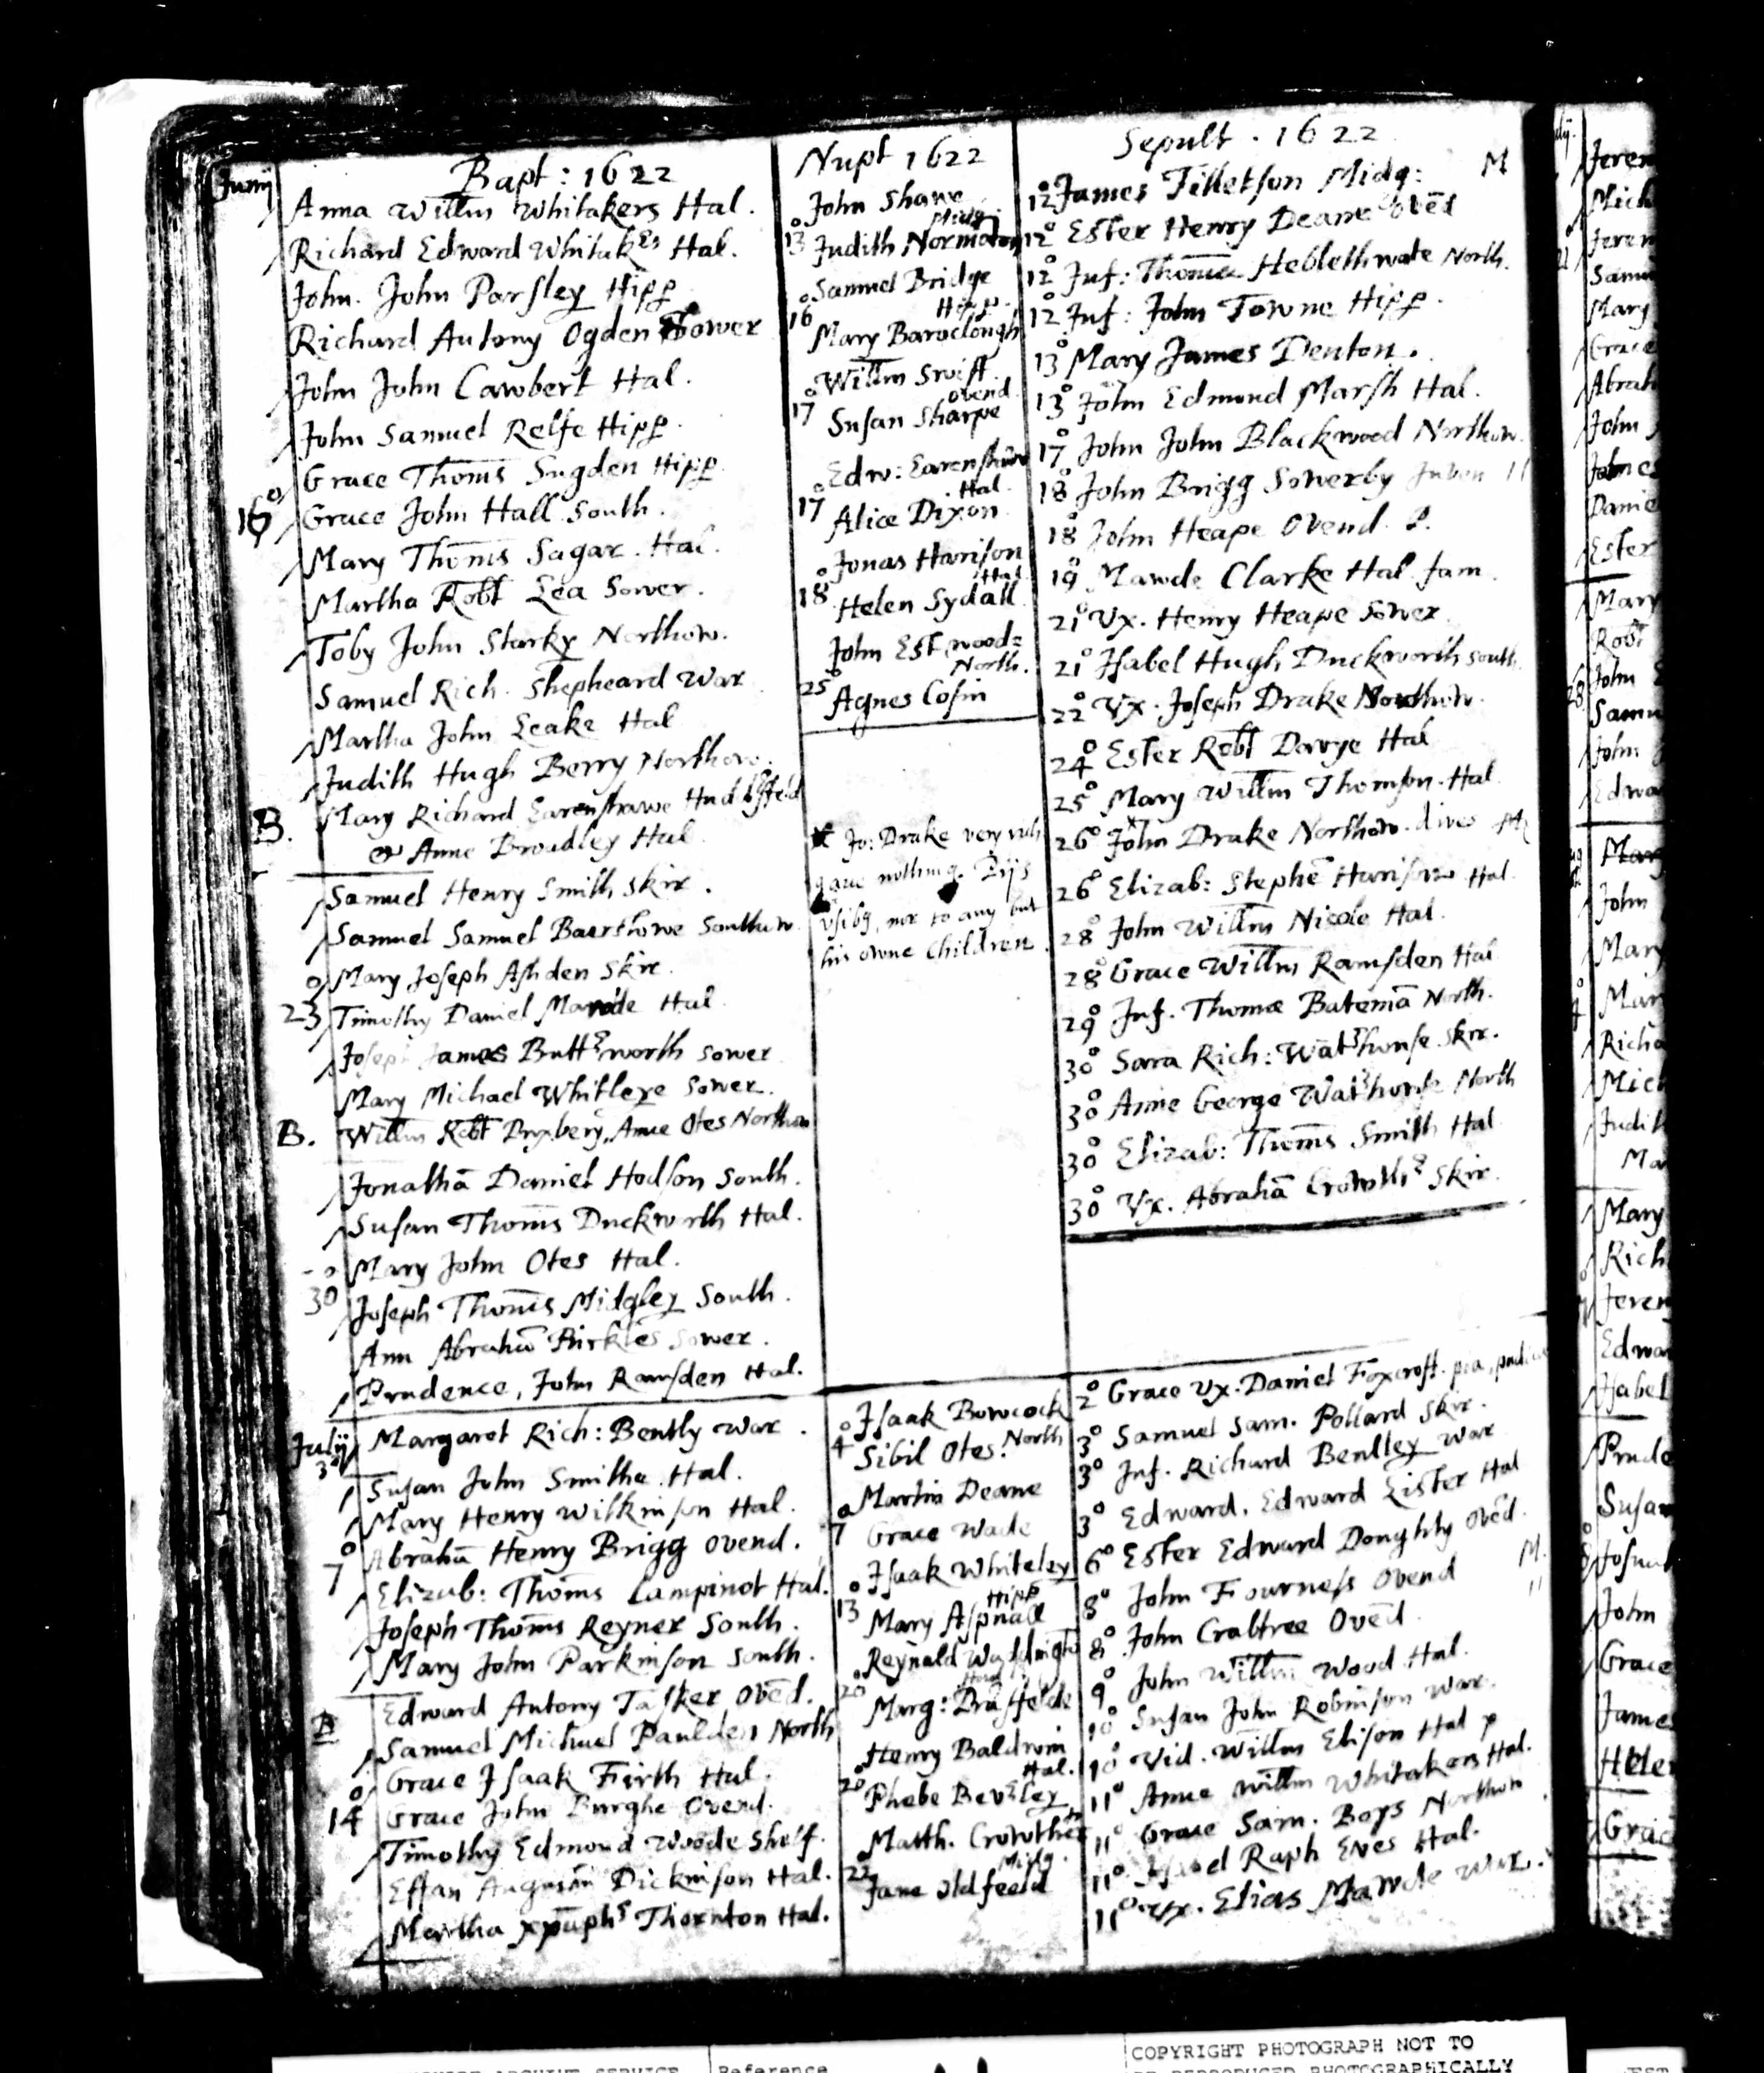 Junij
Bapt: 1622
Anna Willm Whitakers Hal.
Richard Edward Whitakers Hal.
John. John Parsley Hipp
Richard Antony Ogden Sower
John John Cawbert Hal.
John Samuel Relfe Hipp.
Grace Thoms Sugden Hipp
16
Grace John Hall South.
Mary Thoms Sagar. Hal.
Martha Robt Lea Sower.
Toby John Starky Northow.
Samuel Rich. Shepheard War
Martha John Leake Hal
Judith Hugh Berry Northow.
B. Mary Richard Earenshawe
& Anne Broadley Hal
Samuel Henry Smith Skir.
Samuel Samuel Southow
Mary Joseph Ashden Skir.
23 Timothy Daniel Hal
Joseph James Buttrworth Sower
Mary Michael Whitleye Sower.
B. Willm Robt Anne Otes Northow
Jonathā Daniel Hodson South.
Susan Thoms Duckworth Hal.
Mary John Otes Hal.
30 Joseph Thoms Midgley South.
Ann Abrahā Sower.
Prudence, John Ramsden Hal.
Julij
3° Margaret Rich: Bently War.
Susan John Smithe Hal.
Mary Henry Wilkinson Hal.
7° Abrahā Henry Brigg Ovend.
Elizab: Thoms Hal.
Joseph Thoms Reyner South.
Mary John Parkinson South.
B Edward Antony Tasker Ovēd.
Samuel Michael Paulden North
Grace Isaak Firth Hal.
14 Grace John Burghe Ovend.
Timothy Edmond Woode Shelf.
Dickinson Hal.
Martha Thornton Hal.
Nupt 1622
John Shawe
Midg
13° Judith Normaton
Samuel Bridge
Hipp.
16° Mary Baroclough
Willm Swift
Ovend
17° Susan Sharpe
Edw: Earenshaw
Hal.
17° Alice Dixon
Jonas Harison
Hal
18° Helen Sydall
John Estwood=
North.
25° Agnes Cosin
Jo: Drake very rich
gave nothing. Pijs
usibq, nor to any but
his owne Children.
4° Isaak Bowcock
Sibil Otes. North
7° Martin Deane
Grace Wade
Isaak Whiteley
Hipp
13° Mary Aspnall
Reynald
20° Marg:
Henry Baldwin
Hal.
20° Phebe Bevrley
Matth. Crowther
Midg.
22 Jane Oldfeeld
Sepult. 1622
12° James Tilletson Midg: M
12° Ester Henry Deane Ovēd
12° Inf: Thomæ Heblethwate North.
12° Inf: John Towne Hipp.
13° Mary James Denton.
13° John Edmond Marsh Hal.
17° John John Blackwood Northow.
18° John Brigg Sowerby
18° John Heape Ovend. P.
19° Mawde Clarke Hal. fam.
21° Vx. Henry Heape Sower
21° Isabel Hugh Duckworth South.
22° Vx. Joseph Drake Northow.
24° Ester Robt Hal
25° Mary Willm Thomson. Hal
26° John Drake Northow. dives
26° Elizab: Stephē Harison Hal.
28° John Willm Nicole Hal.
28° Grace Willm Ramsden Hal
29° Inf. Thomæ Batemā North.
30° Sara Rich: Watrhouse Skir.
30° Anne George Watrhouse North
30° Elizab: Thoms Smith Hal
30° Vx. Abrahā Crowthr Skir.
2° Grace Vx. Daniel Foxcroft.
3° Samuel Sam. Pollard Skir.
3° Inf. Richard Bentley War
3° Edward. Edward Lister Hal
6° Ester Edward Doughty Ovēd.
8° John Fourness Ovend M.
8° John Crabtree Ovēd.
9° John Willm Wood Hal.
10° Susan John Robinson War.
10° Vid. Willm Elison Hal p
11° Anne Willm Whitakers Hal.
11° Grace Sam. Boys Northow
11° Isabel Raph Eves Hal.
11° Vx. Elias Mawde War.
Mary
Grace
John
Ester
Mary
Robt
John
Mary
John
Mary
Mary
Susan
John
Grace
James
COPYRIGHT PHOTOGRAPH NOT TO
Reference